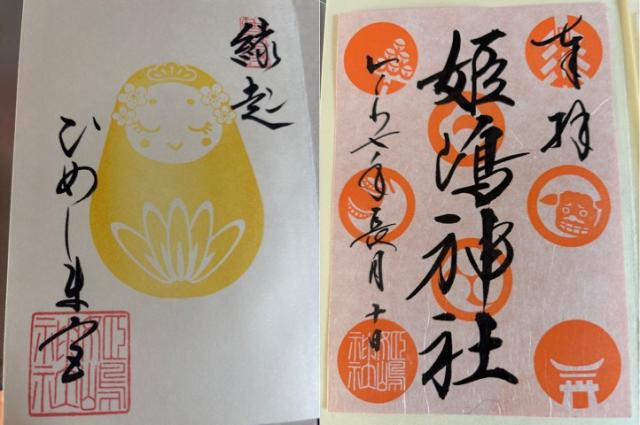 縁起
ひめしま宮
姫嶋
神社
奉拝
姫嶋神社
れいわ七年長月十日
姫嶋
神社